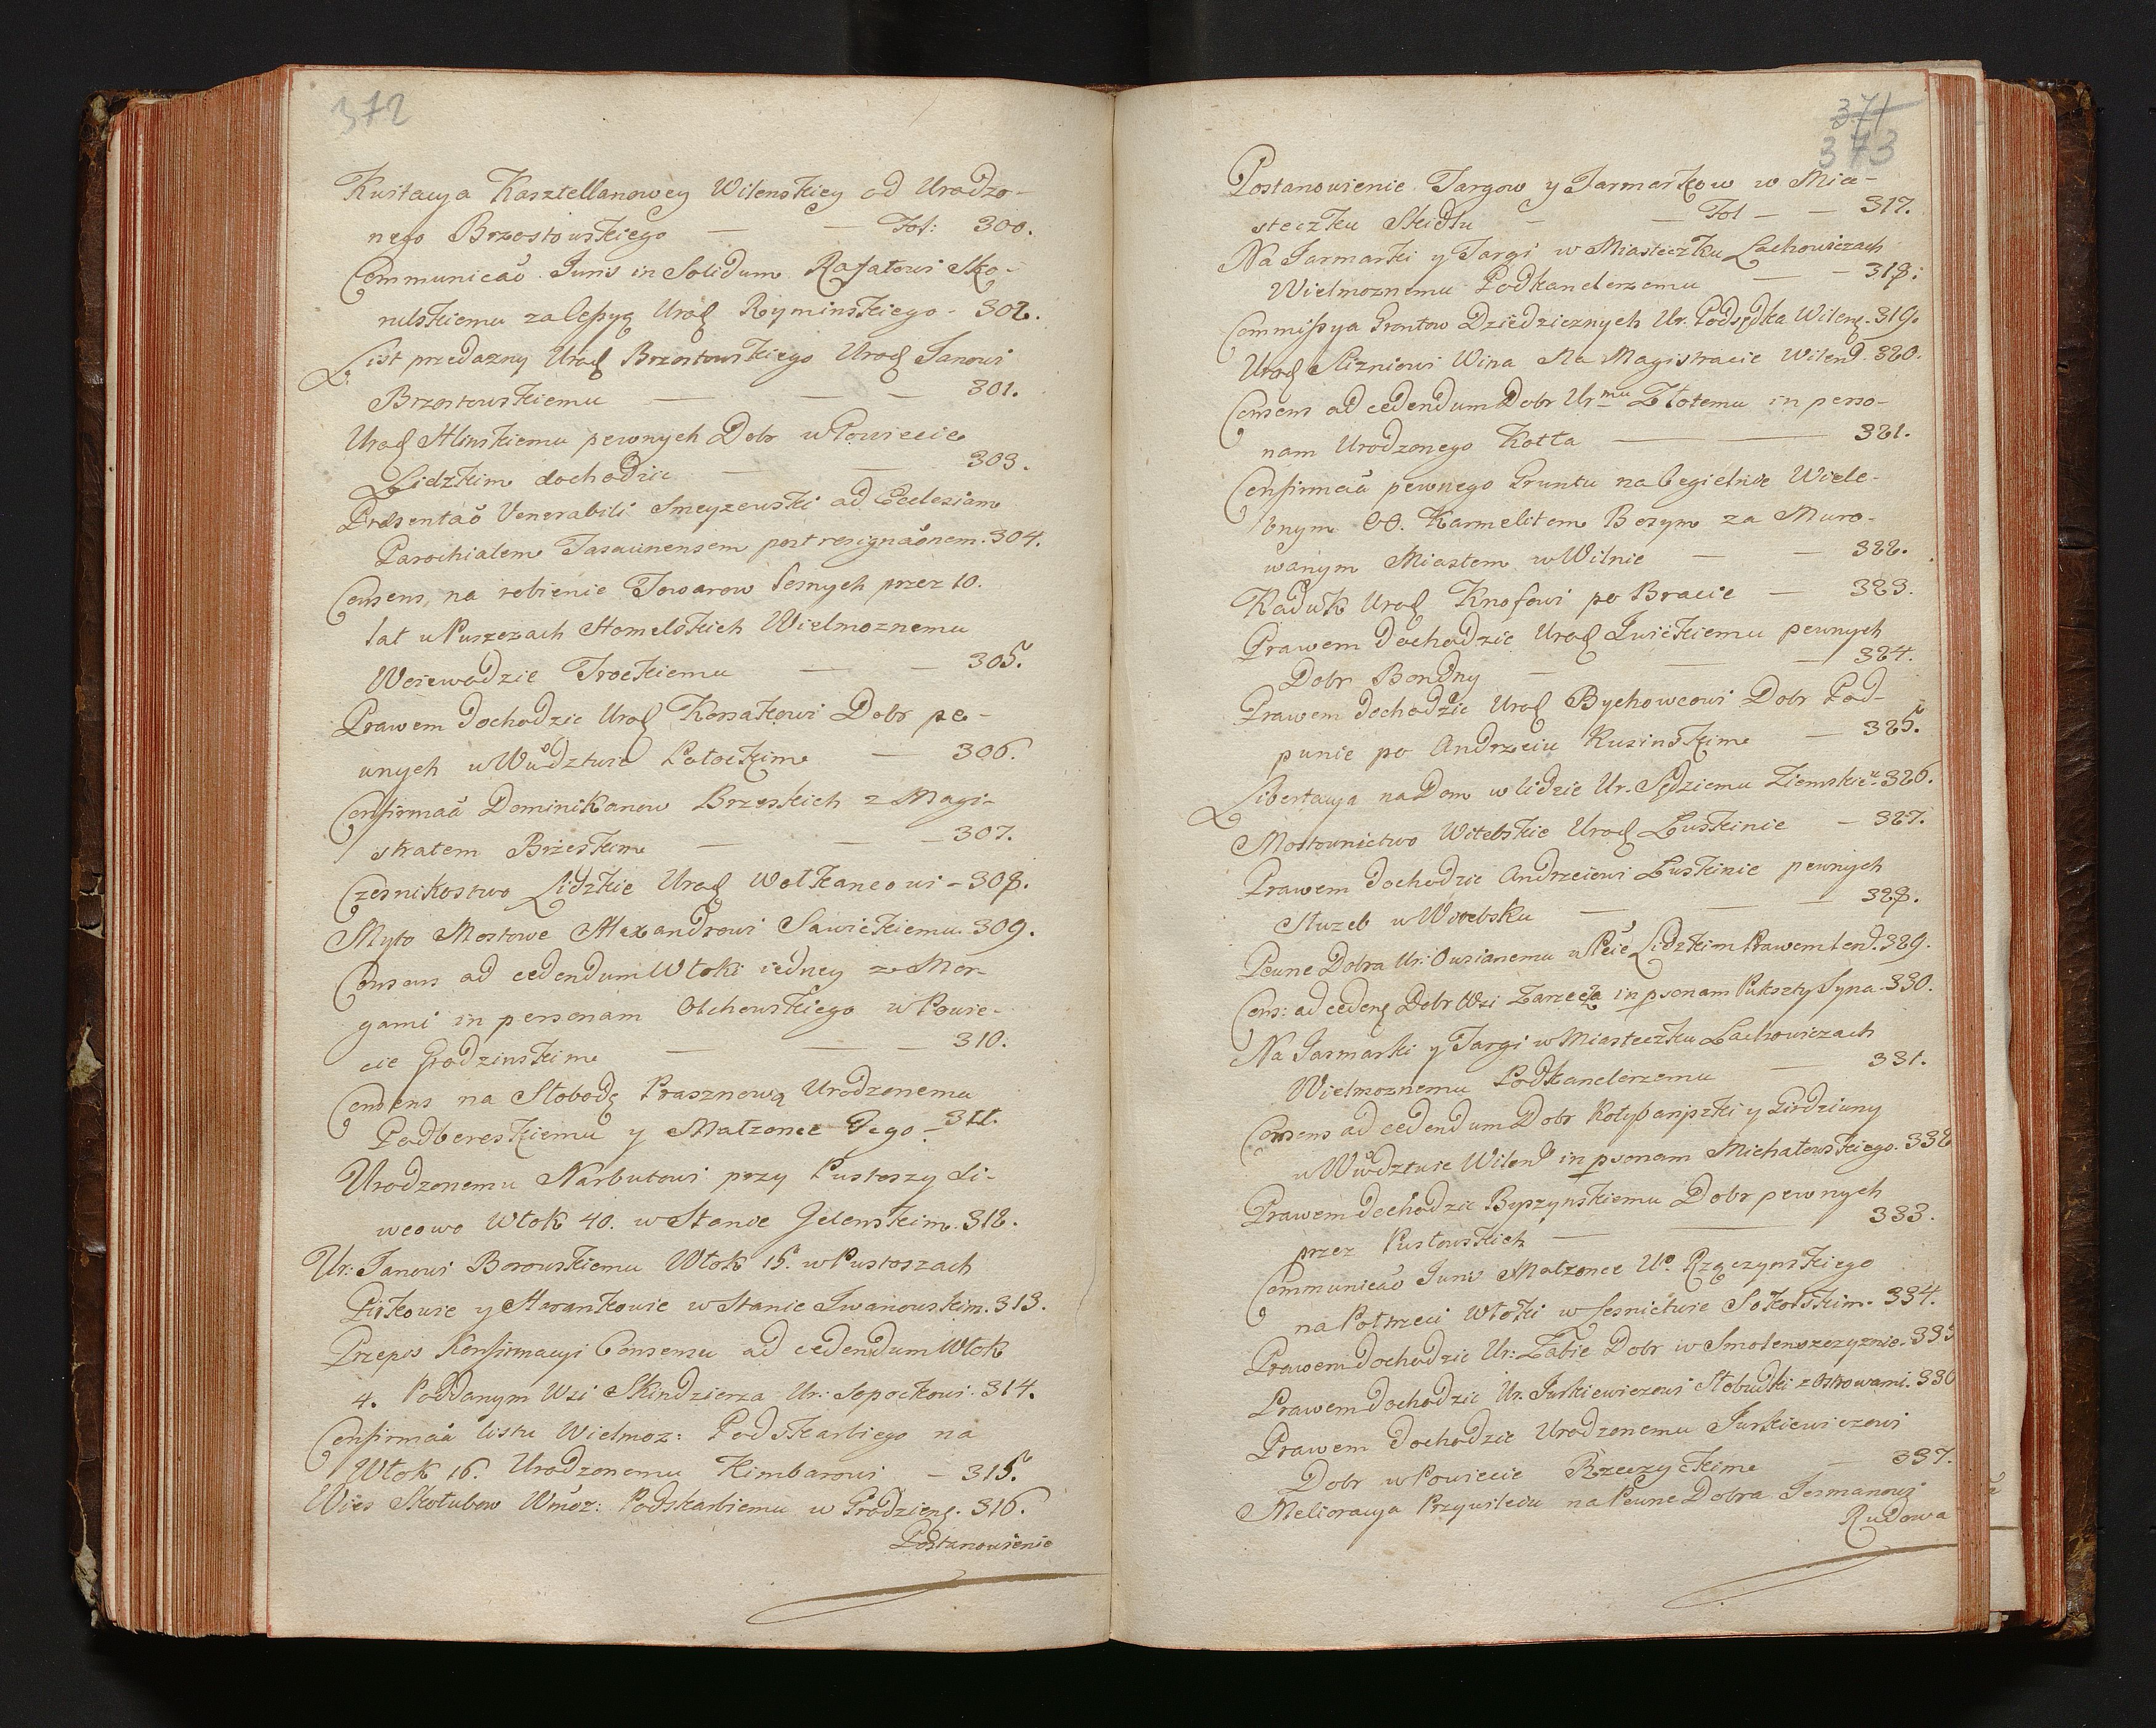 372
Kwitacya Kasztellanowey Wilenskiey od Urodzo-
nego Brzostowskiego — — Fol: 300.
Communicaõ Iuris in Solidum Rafałowi Sko-
rulskiemu za Cessyą Urodz Ryminskiego - 302.
List przedazny Urodz Brzostowskiego Urodz Janowi
Brzostowskiemu — — — 301.
Urodz Alinskiemu pewnych Dobr w Powiecie
Lidzkim dochodzic — — 303.
Præsentaõ Venerabili Smeyzewski ad Ecclesiam
Parochialem post resignaõnem. 304.
Consens, na robienie Towarow Lesnych przez 10.
lat w Puszczach Homelskich Wielmoznemu
Woiewodzie Trockiemu — — 305.
Prawem dochodzic Urodz Korsakowi Dobr pe-
wnych w Wdztwie Połockim — 306.
Confirmaõ Dominikanow Brzeskich z Magi-
stratem Brzeskim — — — 307.
Czesnikostwo Lidzkie Urodz Wołkancowi - 308.
Myto Mostowe Alexandrowi Sawickiemu. 309.
Consens ad cedendum Włoki iedney z Mor-
gami in personam Olchowskiego w Powie-
cie Grodzinskim — — — 310.
Consens na Słobodę Prasznową Urodzonemu
Podbereskiemu y Małzonce Jego - 311.
Urodzonemu Narbutowi przy Pustoszy Li-
wcowo Włok 40. w Stanie Jelenskim. 312.
Ur: Janowi Borowskiemu Włok 15. w Pustoszach
Pirkowie y Harankowie w Stanie Iwanowskim. 313.
Przepis Konfirmacyi Consensu ad cedendum Włok
4. Poddanym Wsi Skindzierza Ur: Sopockowi. 314.
Confirmaõ listu Wielmoz: Podskarbiego na
Włok 16. Urodzonemu Kimbarowi - 315.
Wies Skołubow Wmoz: Podskarbiemu w Grodzienς. 316.
Postanowienie
371
373
Postanowienie Targow y Jarmarkow w Mia-
steczku Skidlu — — Fol — — 317.
Na Jarmarki y Targi w Miasteczku Lachowiczach
Wielmoznemu Podkanclerzemu — — 318.
Commissya Grontow Dziedzicznych Ur. Podsędka Wilenς. 319.
Urodz Slizniowi Wina Na Magistracie Wilens. 320.
Consens ad cedendum Dobr Ur.mu Złotemu in perso-
nam Urodzonego Kotła — — 321.
Confirmaõ pewnego Gruntu na Cegielnie Wiele-
bnym OO. Karmelitom Bosym za Muro-
wanym Miastem w Wilnie — — 322.
Kaduk Urodz Knofowi po Bracie — 323.
Prawem dochodzic Urodz Iwickiemu pewnych
Dobr Bondny — — 324.
Prawem dochodzic Urodz Bychowcowi Dobr Pod-
punie po Andrzeiu Rusinskim — 325.
Libertacya na Dom w Lidzie Ur. Sędziemu Ziemskieu. 326.
Mostownictwo Witebskie Urodz Łuskinie - 327.
Prawem dochodzic Andrzeiowi Łuskinie pewnych
Słuzeb w Witebsku — — — 328.
Pewne Dobra Ur: w Pcie Lidzkim Prawem lend. 329.
Cons: ad cedenς Dobr Wsi Zarzecza in psonam Puksztysyna. 330.
Na Jarmarki y Targi w Miasteczku Lachowiczach
Wielmoznemu Podkanclerzemu — 331.
Consens ad cedendum Dobr y Girdziuny
w Wdztwie Wilens in psonam Michałowskiego. 332
Prawem dochodzic Byszynskiemu Dobr pewnych
przez Pusłowskich — — 333.
Communicaõ Iuris Małzonce Uo. Rzączynskiego
na Połtrzeci Włoki w Lesnictwie Sokolskim. 334.
Prawem dochodzic Ur: Zabie Dobr w Smolenszczyznie. 335
Prawem dochodzic Ur. Jurkiewiczowi Słobudki z Ostrowami. 336
Prawem dochodzic Urodzonemu Jurkiewiczowi
Dobr w Powiecie Rzeczyckim — 337.
Melioracya Przywileiu na Pewne Dobra Jesmanowi
Rudowa